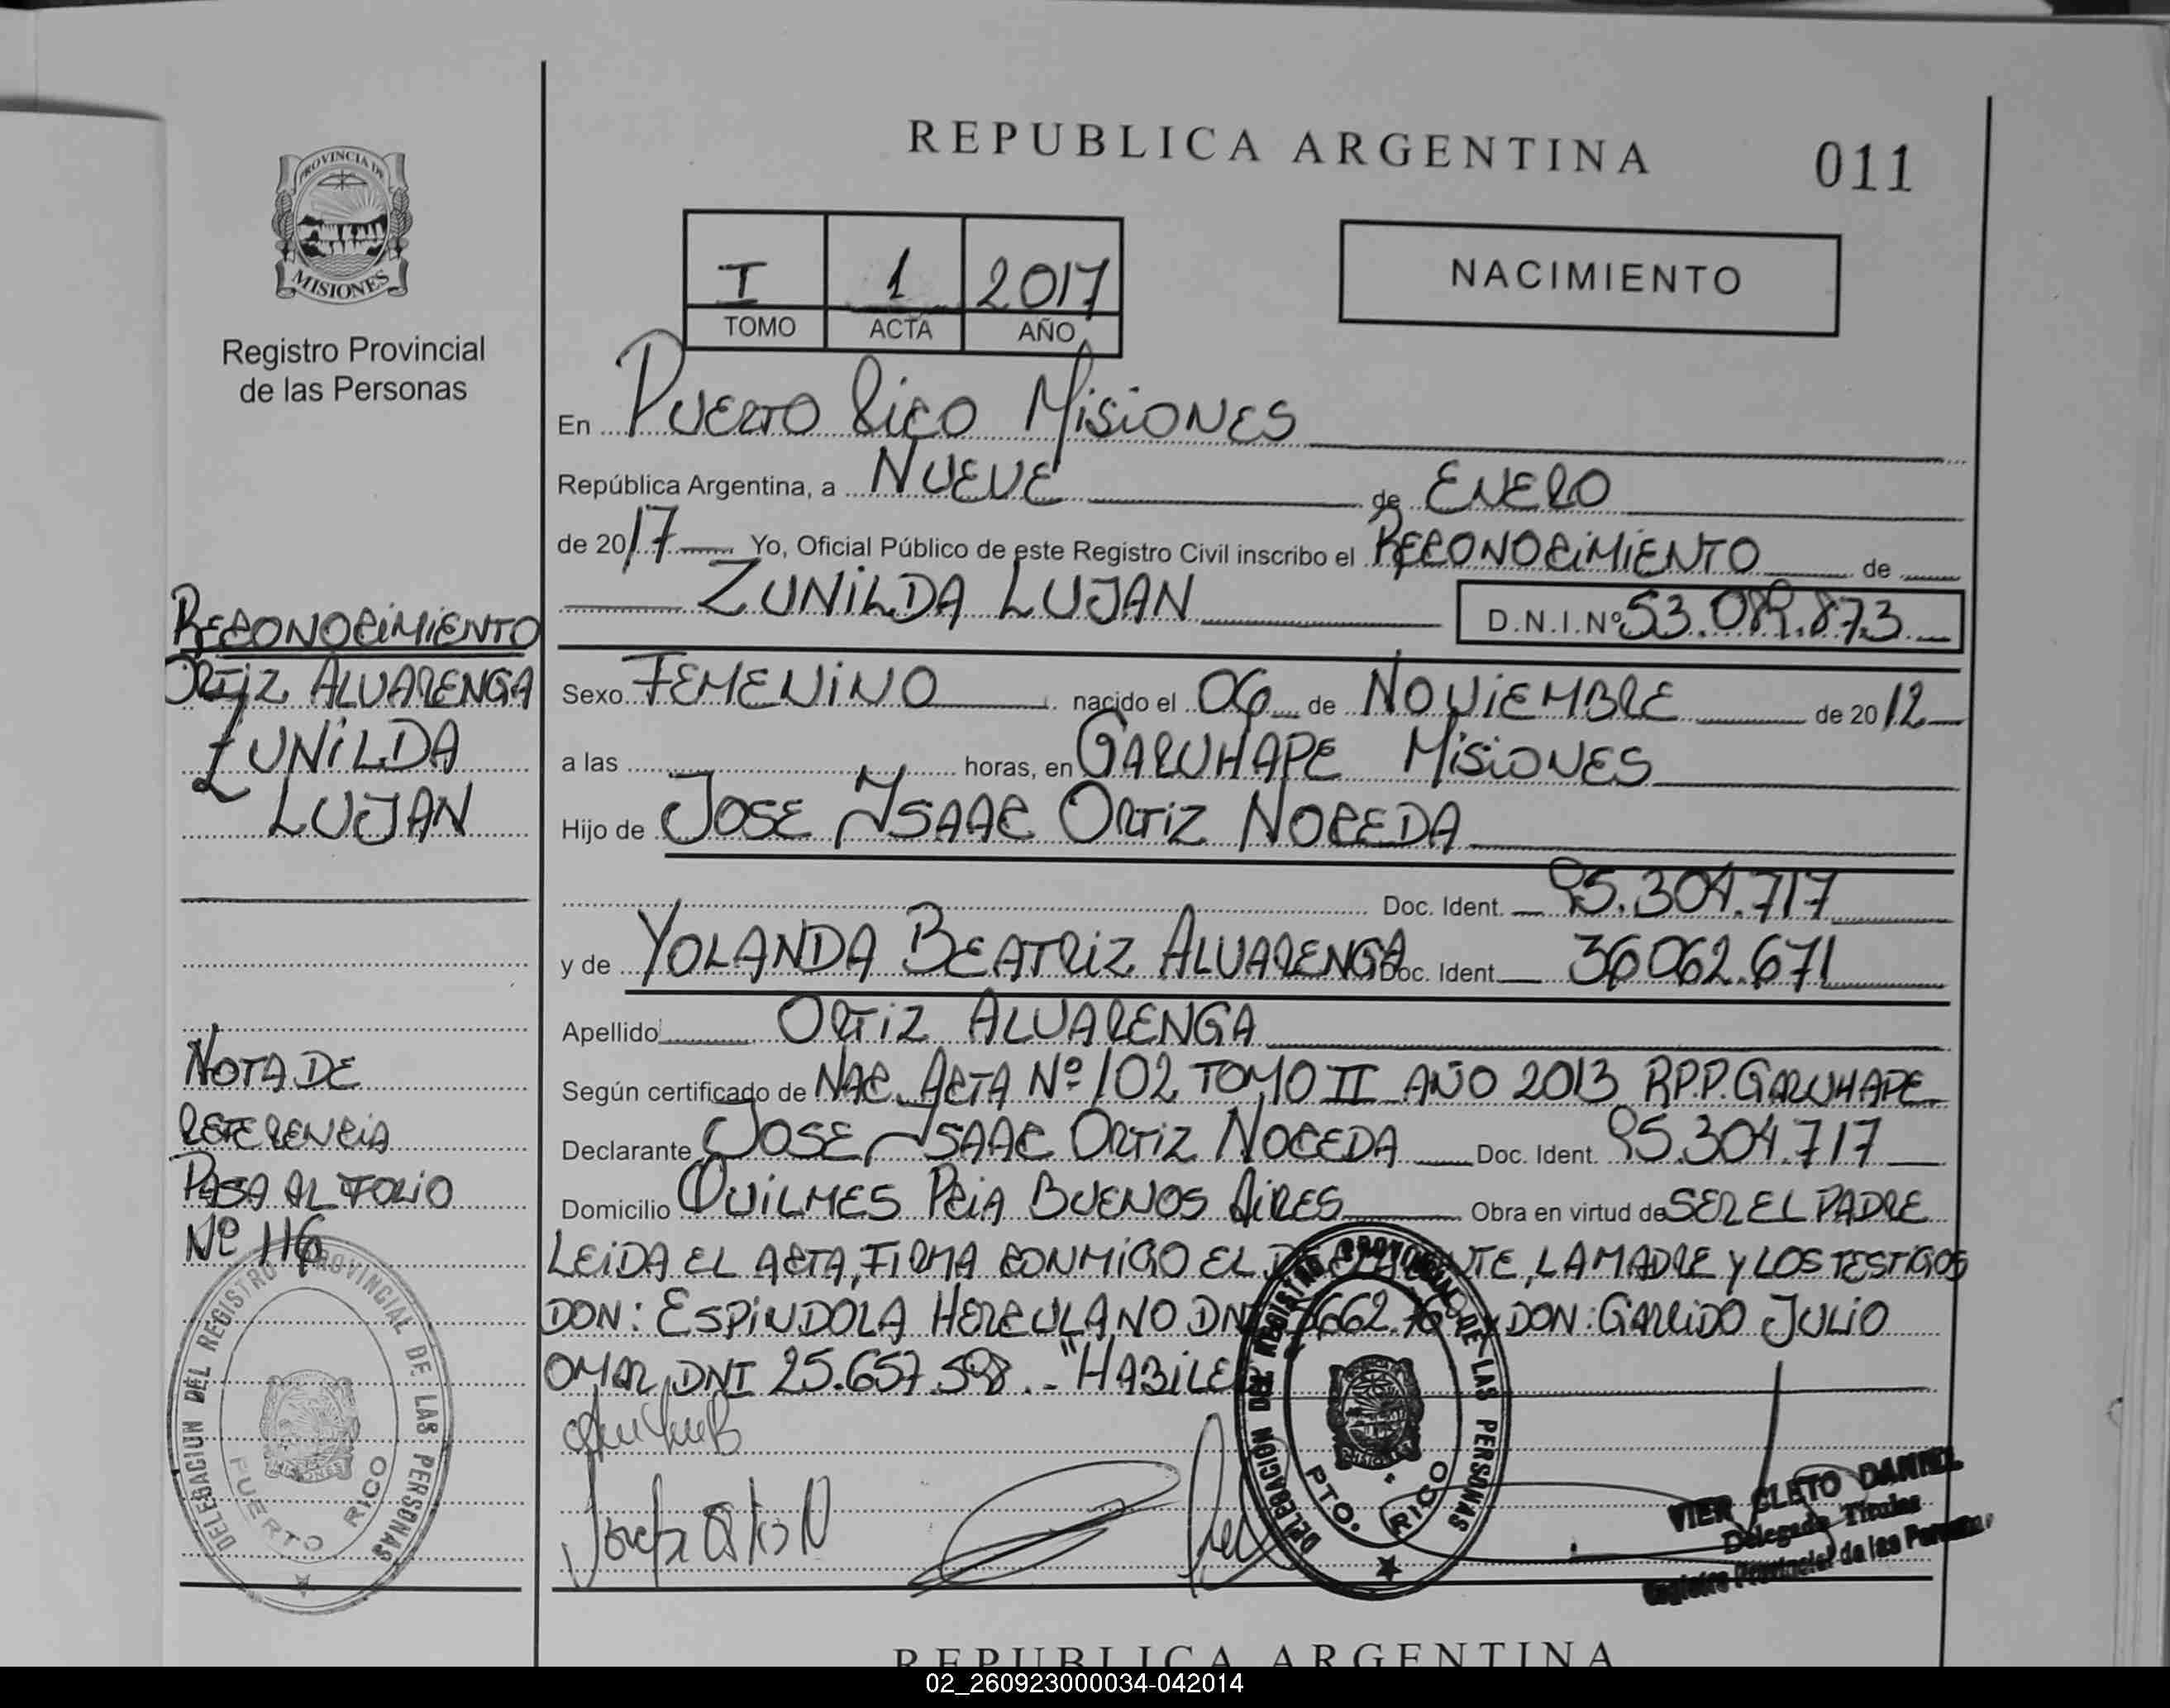 REPUBLICA ARGENTINA
011
PROVINCIA DE
MISIONES
Registro Provincial
de las Personas
I 1 2017
TOMO ACTA AÑO
NACIMIENTO
En PUERTO RICO MISIONES
República Argentina, a NUEVE de ENERO
de 2017 Yo, Oficial Público de este Registro Civil inscribo el RECONOCIMIENTO de
ZUNILDA LUJAN D.N.I.Nº 53.089.873
Sexo FEMENINO nacido el 06 de NOVIEMBRE de 2012
a las horas, en GARUHAPE MISIONES
Hijo de JOSE ISAAC ORTIZ NOCEDA
Doc. Ident. 95.304.717
y de YOLANDA BEATRIZ ALVARENGA Doc. Ident. 36062.671
Apellido ORTIZ ALVARENGA
Según certificado de NAC. ACTA Nº 102 TOMO II AÑO 2013 R.P.P. GARUHAPE
Declarante JOSE ISAAC ORTIZ NOCEDA Doc. Ident. 95.304.717
Domicilio QUILMES PCIA BUENOS AIRES Obra en virtud de SER EL PADRE
LEIDA EL ACTA, FIRMA CONMIGO EL LA MADRE Y LOS TESTIGOS
DON: ESPINDOLA HERCULANO DNI DON: GARRIDO JULIO
OMAR DNI 25.657.598.- "HABILES
RECONOCIMIENTO
ORTIZ ALVARENGA
ZUNILDA
LUJAN
NOTA DE
REFERENCIA
PASA AL FOLIO
Nº 116
DELEGACION DEL REGISTRO PROVINCIAL DE LAS PERSONAS
PUERTO RICO
DELEGACION DEL REGISTRO PROVINCIAL DE LAS PERSONAS
PTO. RICO
VIER CLETO DANIEL
Delegado Titular
Registro Provincial de las Personas
REPUBLICA ARGENTINA
02_260923000034-042014